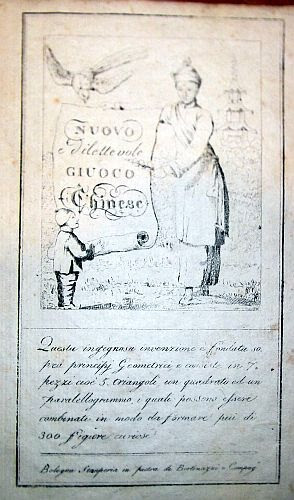 NUOVO
e dilettevole
GIUOCO
Chinese
Questa ingegnosa invenzione è fondata so
pra principj Geometrici e consiste in 7.
pezzi cioè 5. triangoli un quadrato ed un
paralellogrammo i quali possono essere
combinati in modo da formare più di
300 figure curiose
Bologna Stamperia in pietra di Bertinazzi e Compag